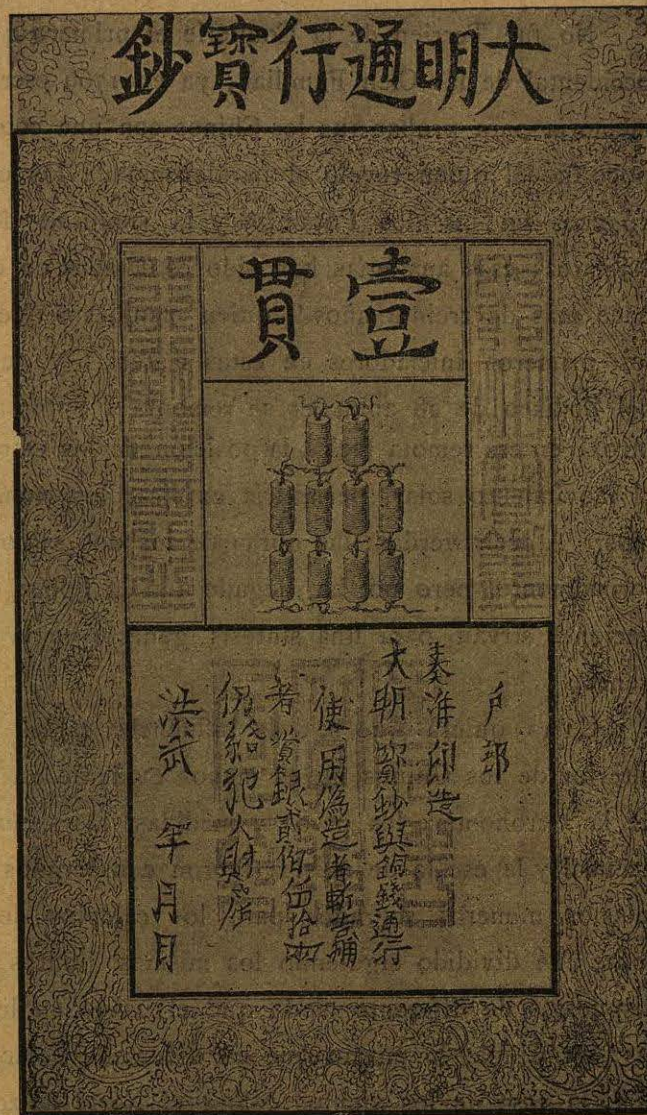 大明通行寶鈔
壹貫
户部
奏准印造
大明寶鈔與銅錢通行
使用偽造者斬告捕
者賞銀貳佰伍拾兩
仍給犯人財產
洪武 年月日